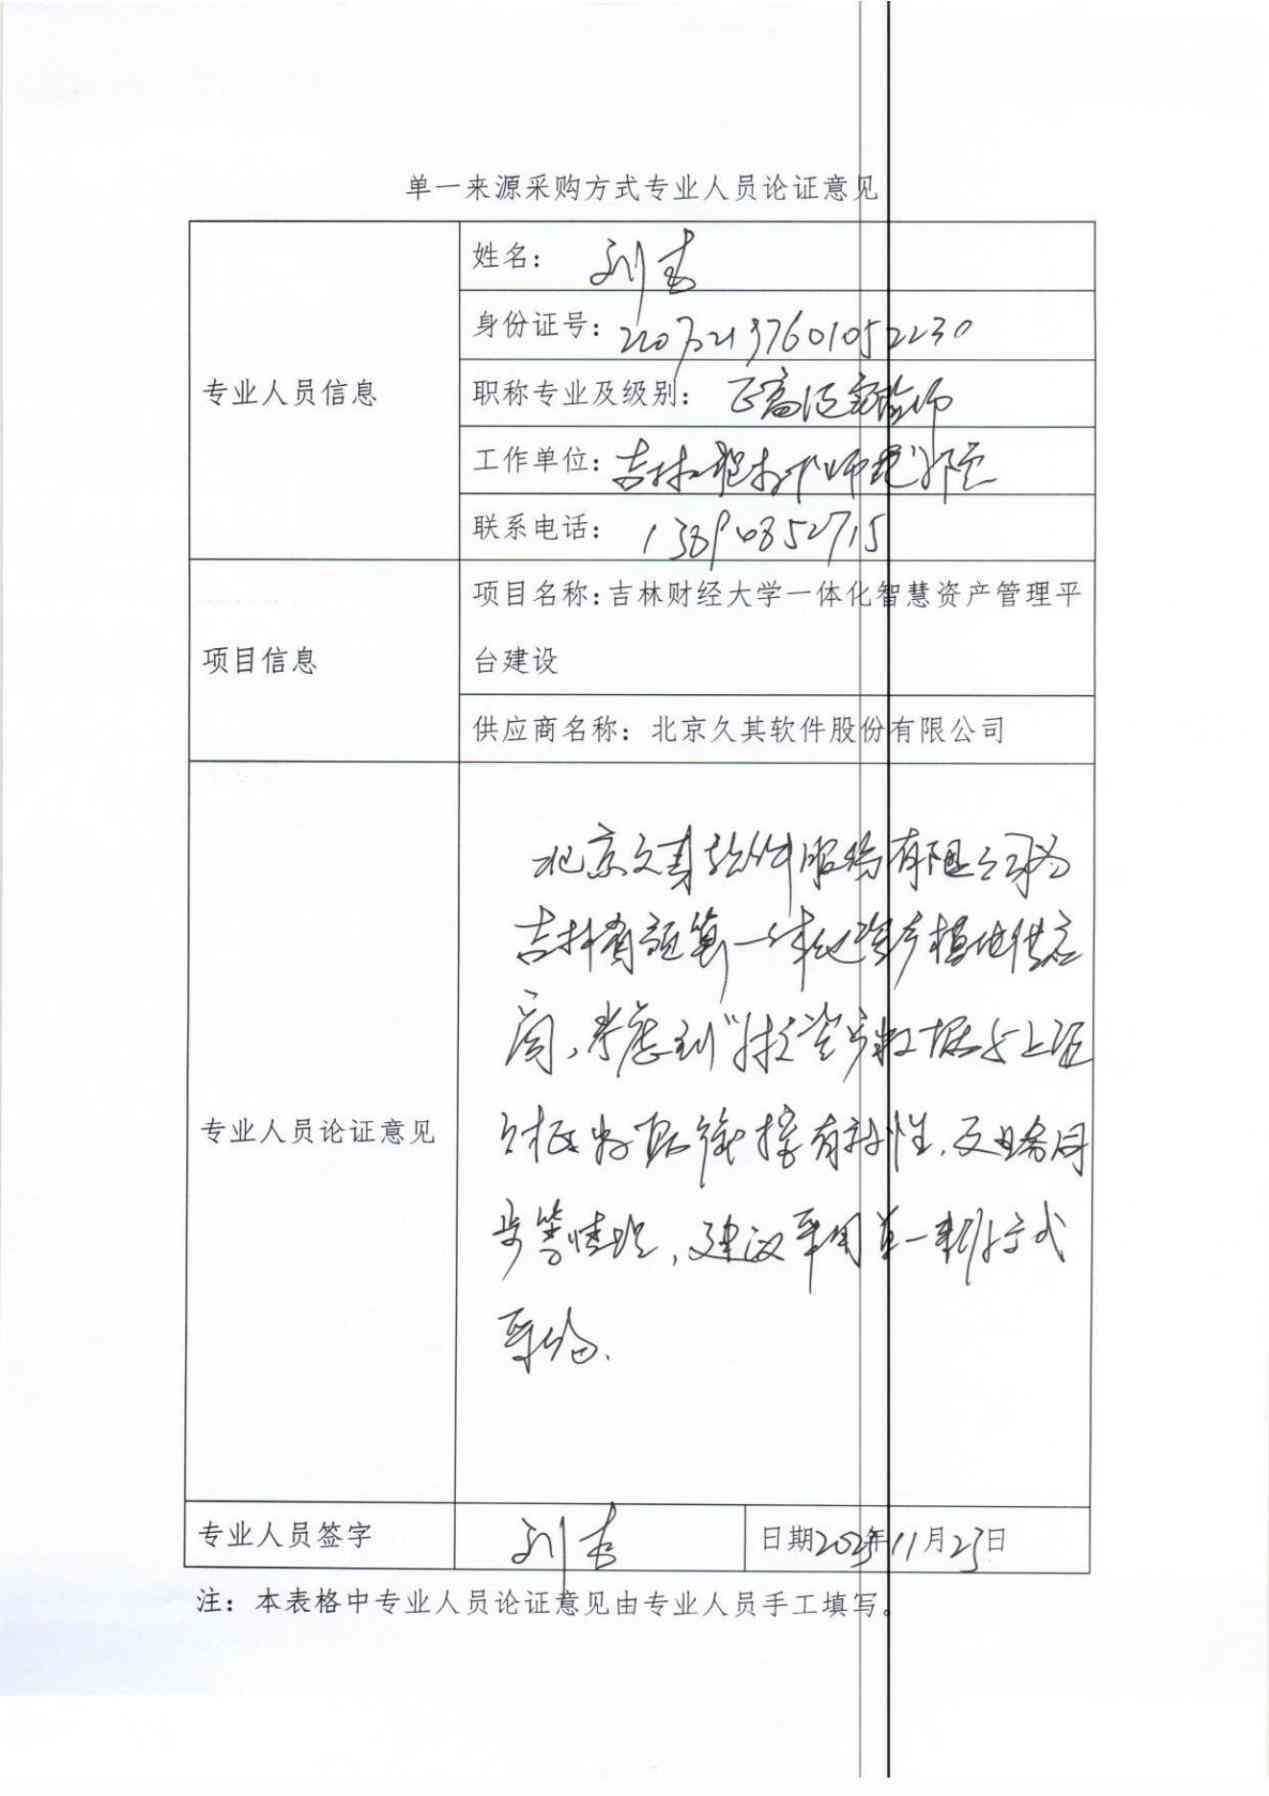 单一来源采购方式专业人员论证意见
专业人员信息
姓名：刘
身份证号：
职称专业及级别：正高级
工作单位：吉林
联系电话：
项目信息
项目名称：吉林财经大学一体化智慧资产管理平
台建设
供应商名称：北京久其软件股份有限公司
专业人员论证意见
北京久其软件股份有限公司为
吉林省预算一体化资产模块供应
商，考虑到资产数据与上
数据衔接有效性，及业务同
步等情况，建议采用单一来源方式
采购。
专业人员签字
刘
日期2023年11月23日
注：本表格中专业人员论证意见由专业人员手工填写。